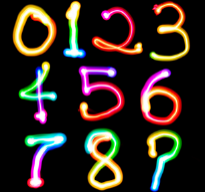 0 1 2 3
4 5 6
7 8 9